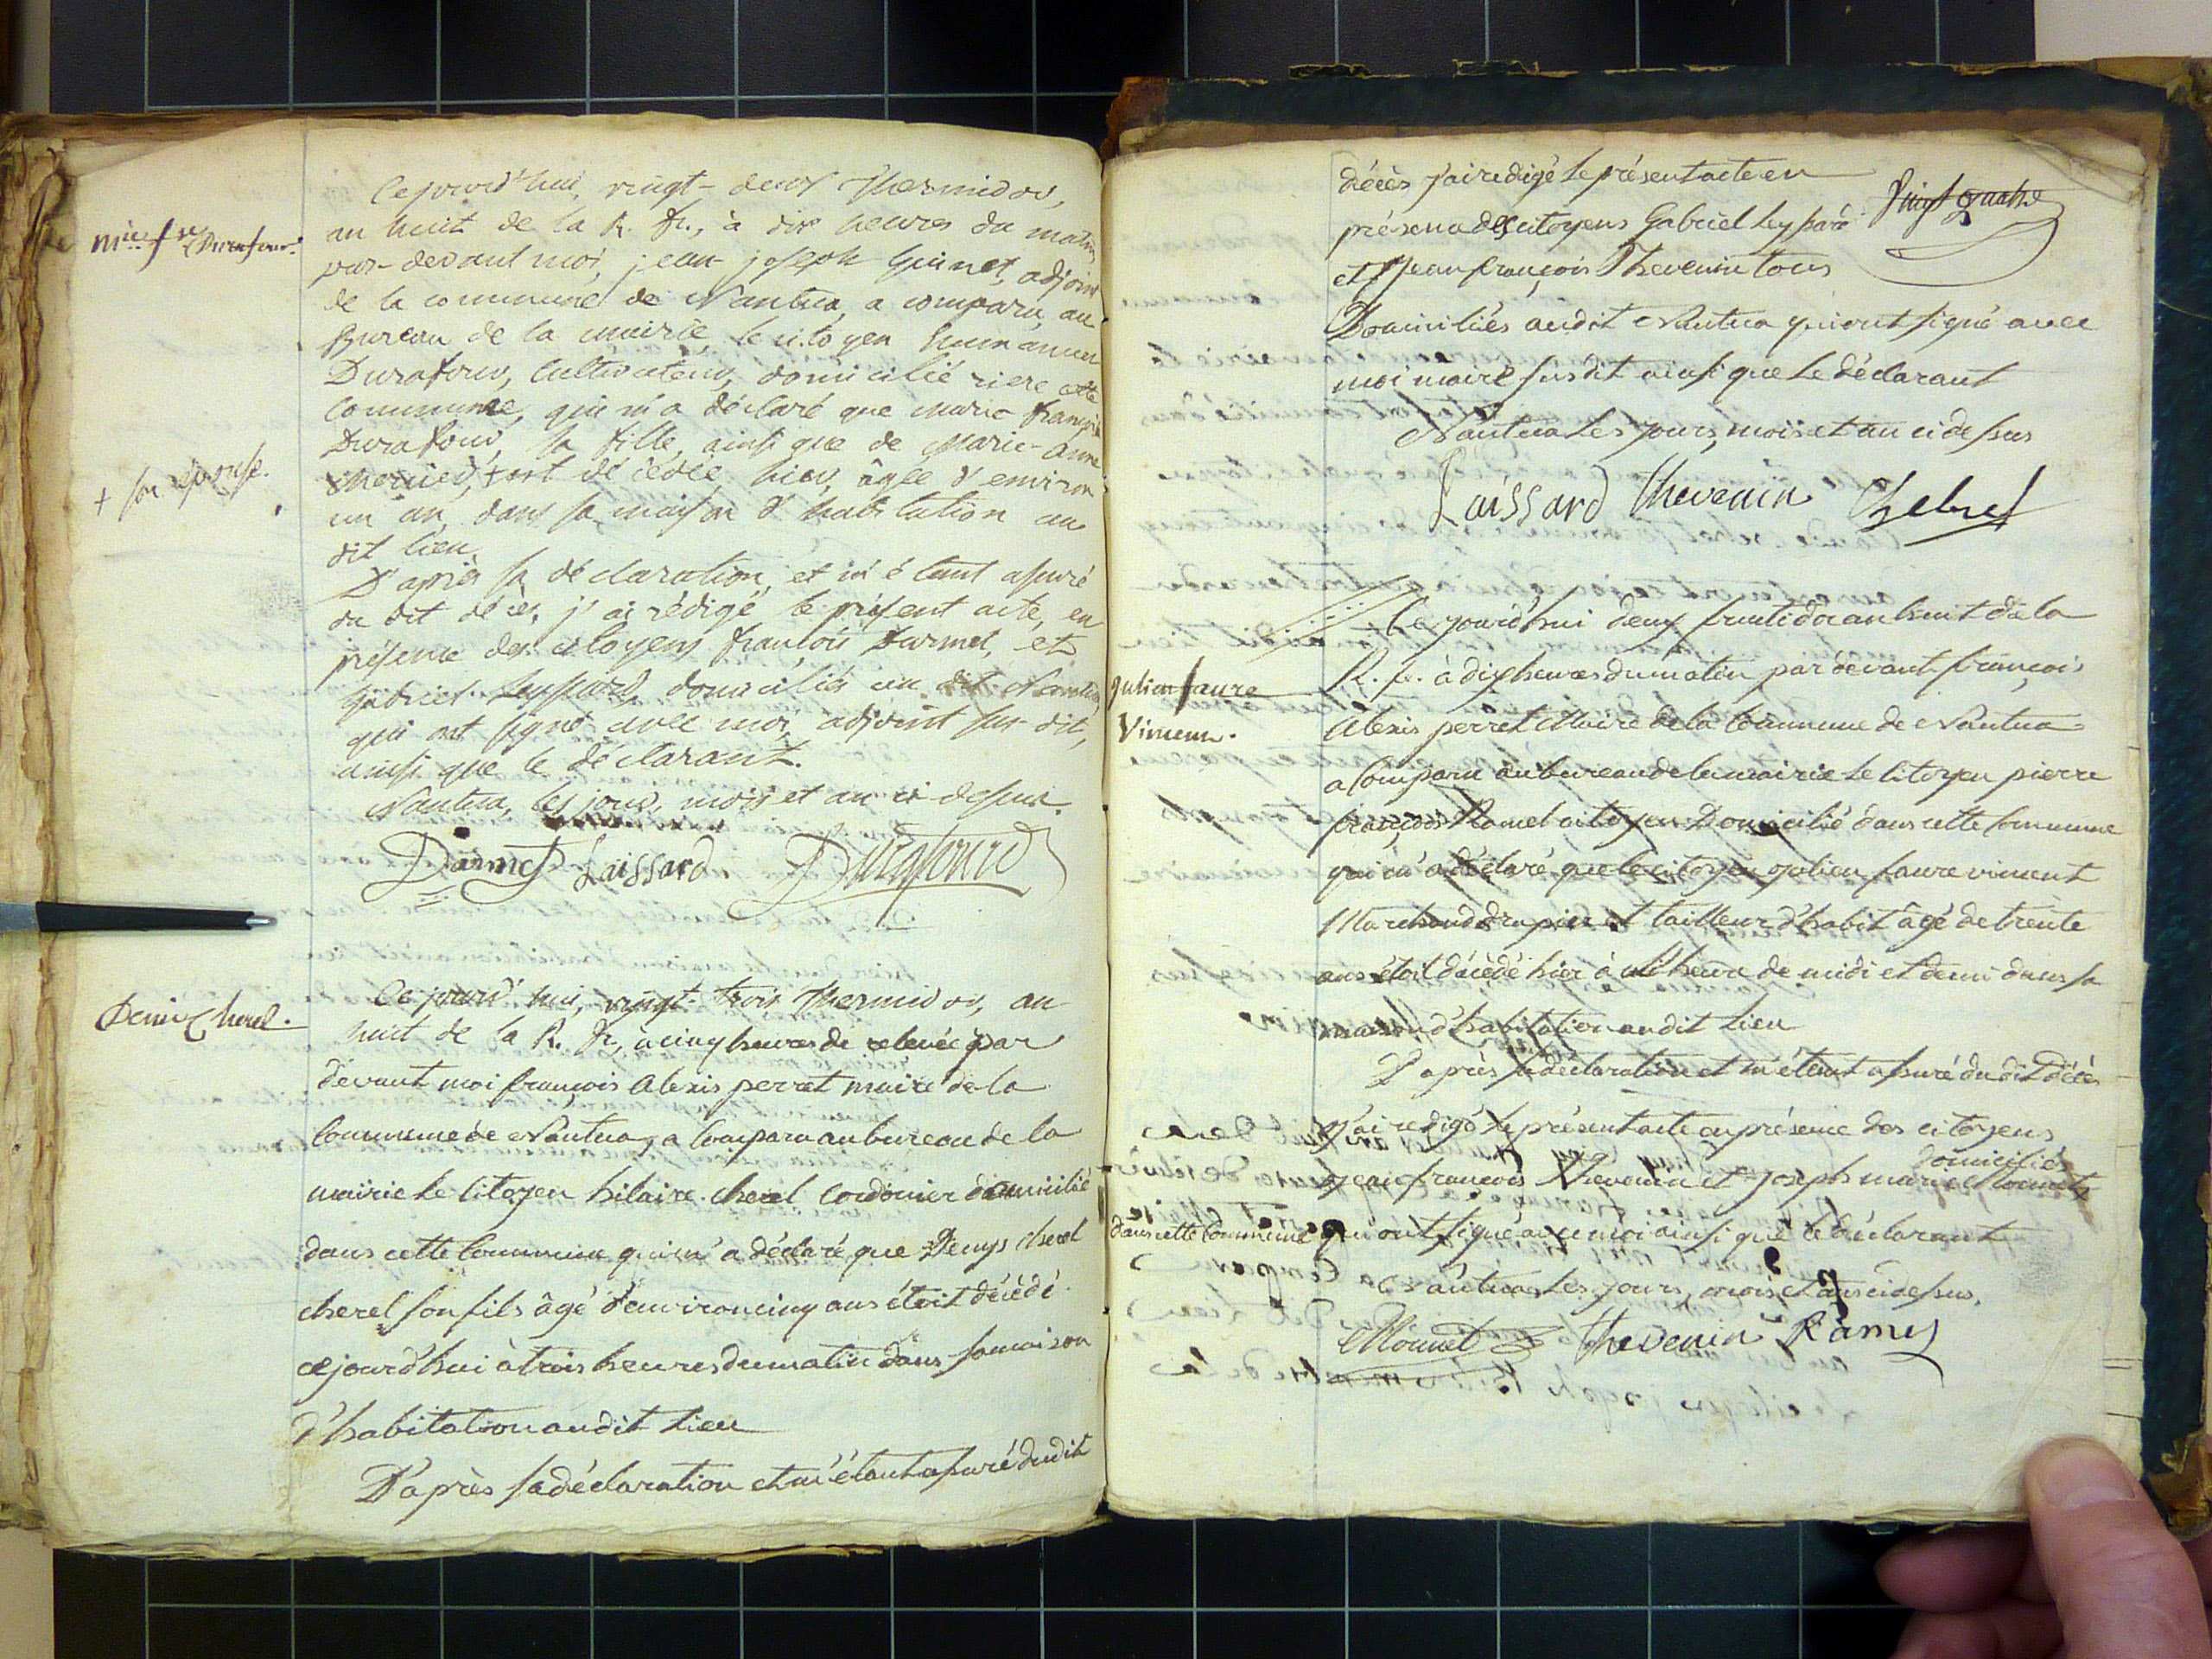 Ce jourd'hui, vingt-deux Thermidor,
an huit de la R. fr., à dix heures du matin
par-devant moi, jean-joseph Guinet, adjoint
de la commune de Nantua, a comparu, au
Bureau de la mairie, le citoyen
Durafour, Cultivateur, domicilié riere cette
Commune, qui m'a déclaré que marie françoise
Durafour, sa fille, ainsi que de Marie-Anne
+ est décédée, hier, âgée d'environ
un an, dans sa maison d'habitation au
dit lieu.
D'après sa déclaration, et m'étant assuré
du dit décès, j'ai rédigé le présent acte, en
présence des citoyens françois Darmet, et
Gabriel Leyssard, domiciliés au dit Nantua,
qui ont signé avec moi, adjoint sus-dit,
ainsi que le déclarant.
Nantua, les jour, mois et an ci-dessus.
Darmet Laissard Durafourd
mie fse Durafour.
+ son épouse.
Denis Cherel.
Ce jourd'hui, vingt-trois Thermidor, an
huit de la R. fr, a cinq heures de relevée par
devant moi françois Alexis perret maire de la
Commune de Nantua, a Comparu au bureau de la
mairie le Citoyen hilaire cherel Cordonier domicilié
dans cette Commune qui m'a déclaré que Denys cherel
cherel son fils âgé d'environ cinq ans étoit décédé
ce jourd'hui à trois heures du matin dans sa maison
d'habitation au dit Lieu
D'après sa déclaration et m'étant assuré du dit
décès j'ai redigé le présent acte en
présence des citoyens Gabriel Leyssard
et jean françois Thevenin tous
Domiciliés audit Nantua qui ont signé avec
moi maire susdit ainsi que le déclarant
Nantua Les jours, mois et an ci dessus
Laissard thevenin Cherel
Vingt quatre
Ce jourd'hui deux fructidor an huit de la
R. f. à dix heures du matin par devant françois
Alexis perret Maire de la Commune de Nantua
a Comparu au bureau de la mairie le Citoyen pierre
françois Ramel citoyen Domicilié dans cette Commune
qui m'a déclaré que le citoyen julien faure vincent
Marchand drapier et tailleur d'habit âgé de trente
ans étoit décédé hier à l'heure de midi et demi dans sa
maison d'habitation au dit Lieu
D'après sa déclaration et m'étant assuré du dit décès
j'ai redigé le présent acte en présence des citoyens
jean françois Thevenin et joseph marie Monnet domiciliés
dans cette Commune qui ont signé avec moi ainsi que le déclarant
Nantua Les jours, mois et an ci dessus.
Monnet thevenin Ramel
julien faure
Vincent.